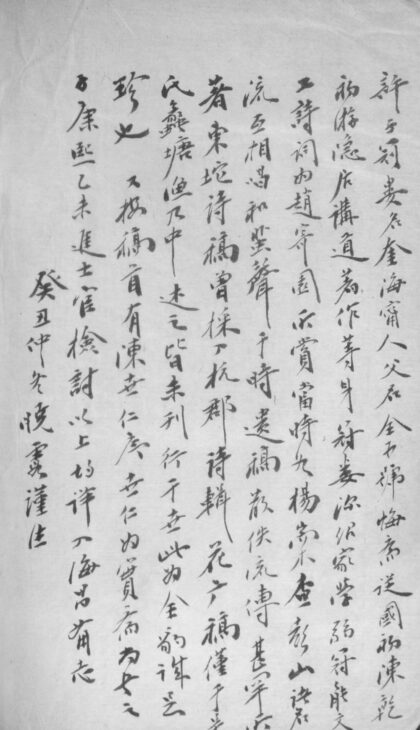 許子冠婁名奎海甯人父名全可號悔齋從國初陳乾
初游隱居講道著作等身冠婁深佩家學弱冠能文
工詩詞為趙寄園所賞當時如楊崇木查彭山諸名
流互相唱和蜚聲于時遺稿散佚流傳甚罕所
著東垞詩稿曾採入杭郡詩輯 花戶稿僅于吳
氏蠡塘漁乃中述之皆未刊行于世此為全豹誠足
珍也 又按稿首有陳世仁序世仁為寳齋公之
子康熙乙未進士官檢討以上均詳入海昌備志
癸丑仲冬曉霞謹志